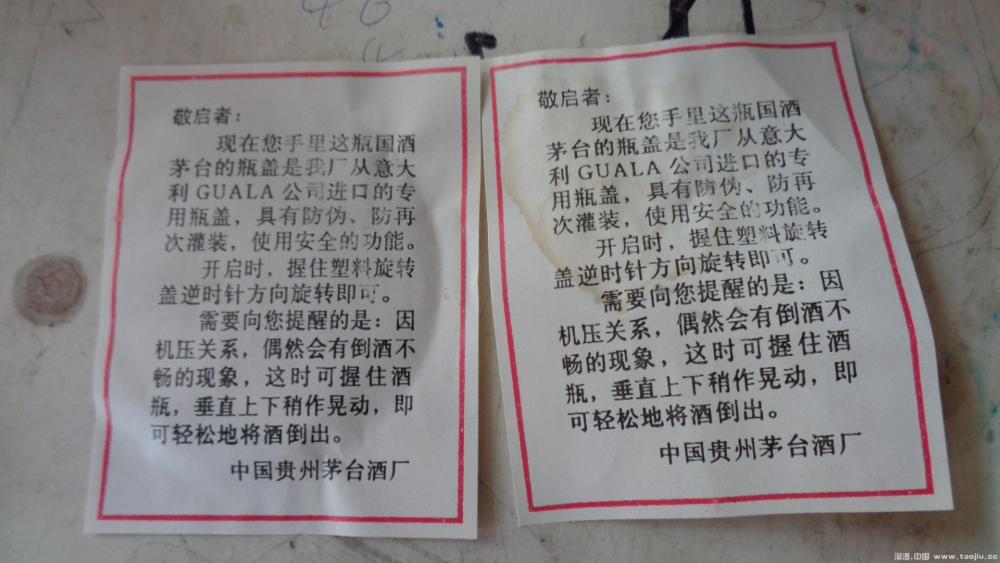 46
敬启者：
现在您手里这瓶国酒
茅台的瓶盖是我厂从意大
利GUALA公司进口的专
用瓶盖，具有防伪、防再
次灌装，使用安全的功能。
开启时，握住塑料旋转
盖逆时针方向旋转即可。
需要向您提醒的是：因
机压关系，偶然会有倒酒不
畅的现象，这时可握住酒
瓶，垂直上下稍作晃动，即
可轻松地将酒倒出。
中国贵州茅台酒厂
敬启者：
现在您手里这瓶国酒
茅台的瓶盖是我厂从意大
利GUALA公司进口的专
用瓶盖，具有防伪、防再
次灌装，使用安全的功能。
开启时，握住塑料旋转
盖逆时针方向旋转即可。
需要向您提醒的是：因
机压关系，偶然会有倒酒不
畅的现象，这时可握住酒
瓶，垂直上下稍作晃动，即
可轻松地将酒倒出。
中国贵州茅台酒厂
淘酒.中国 www.taojiu.cc